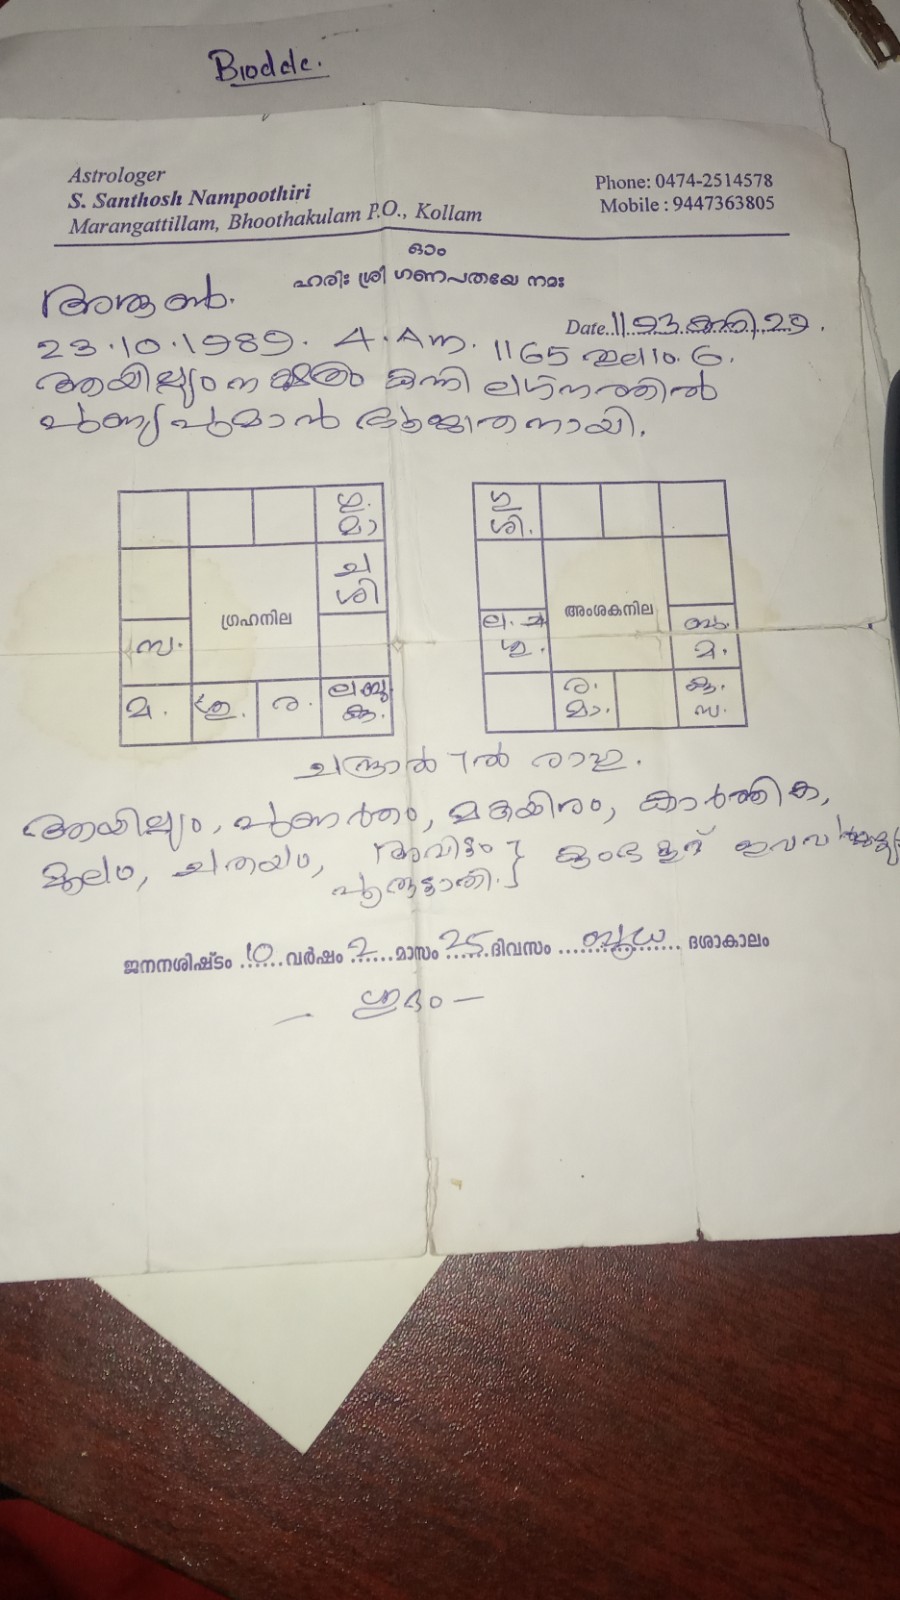 Astrologer
S. Santhosh Nampoothiri
Marangattillam, Bhoothakulam P.O., Kollam
Phone: 0474-2514578
Mobile : 9447363805
ഓം
ഹരിഃ ശ്രീ ഗണപതയേ നമഃ
അരുൺ.
Date..1193 കന്നി 29.
23.10.1989. 4.Am. 1165 തുലാം. 6.
ആയില്യം നക്ഷത്രം കന്നി ലഗ്നത്തിൽ
പുണ്യപുമാൻ ഭൂജാതനായി.
ഗു. മാ
ച ശി
ഗ്രഹനില
സ.
മ. ശു. ര. ല ബു കു.
ഗു ശി.
അംശകനില
ല. ച ശു.
ബു. മ.
ര. മാ.
കു. സ.
ചന്ദ്രാൽ 7ൽ രാഹു.
ആയില്യം, പുണർതം, മകയിരം, കാർത്തിക,
മൂലം, ചതയം, അവിട്ടം പൂരുട്ടാതി. } കുംഭകൂറ് ഇവ
ജനനശിഷ്ടം 10 വർഷം 2 മാസം 25 ദിവസം ബുധ ദശാകാലം
— ശുഭം —